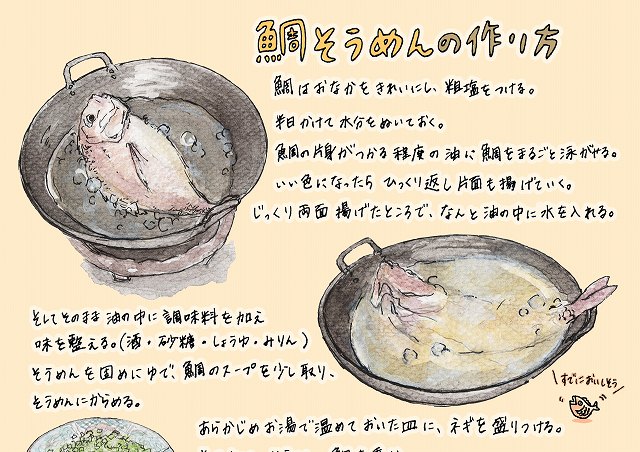 鯛そうめんの作り方
鯛はおなかをきれいにし、粗塩をつける。
半日かけて水分をぬいておく。
鯛の片身がつかる程度の油に鯛をまるごと泳がせる。
いい色になったらひっくり返し片面も揚げていく。
じっくり両面揚げたところで、なんと油の中に水を入れる。
そしてそのまま油の中に調味料を加え
味を整える。(酒・砂糖・しょうゆ・みりん)
そうめんを固めにゆで、鯛のスープを少し取り、
そうめんにからめる。
すでにおいしそう
あらかじめお湯で温めておいた皿に、ネギを盛りつける。